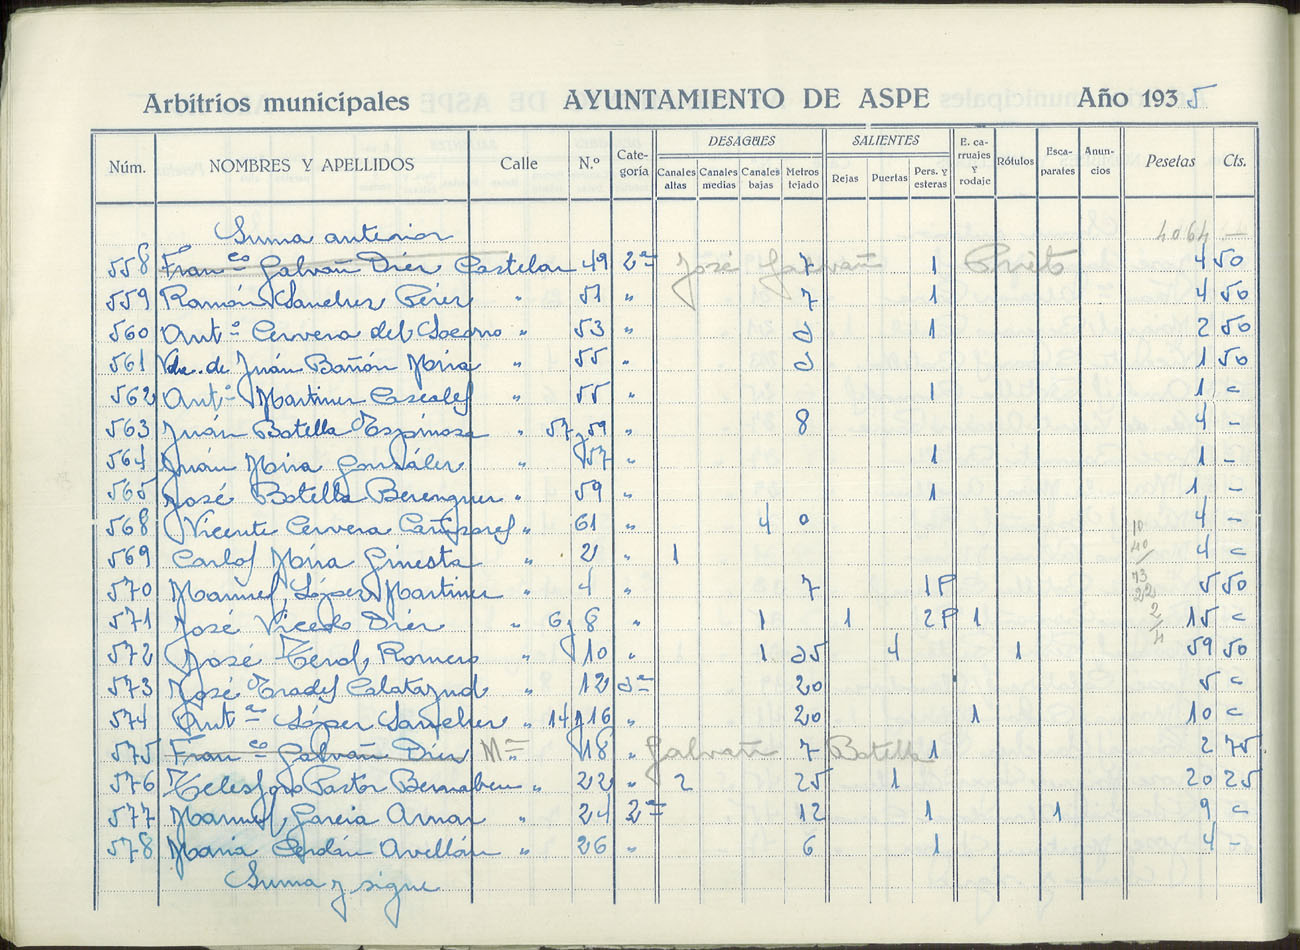 Arbitrios municipales AYUNTAMIENTO DE ASPE Año 1935
Núm. NOMBRES Y APELLIDOS Calle N.º Cate-goría DESAGÜES Canales altas Canales medias Canales bajas Metros tejado SALIENTES Rejas Puertas Pers. y esteras E. ca-rruajes y rodaje Rótulos Esca-parates Anun-cios Pesetas Cts.
Suma anterior 4064 —
558 Franco Galvañ Diez Castelar 49 2ª José Galvañ Prieto 7 1 4 50
559 Ramón Sanchez Pérez " 51 " 7 1 4 50
560 Antº Cervera del Socorro " 53 " 3 1 2 50
561 Vda. de Juán Bañón Mira " 55 " 3 1 50
562 Antº Martinez Cascales " 55 " 1 "
563 Juán Botella Espinosa " 57 y 59 " 8 4 —
564 Juán Mira González " 57 " 1 1 —
565 José Botella Berenguer " 59 " 1 1 —
568 Vicente Cervera Cañizares " 61 " 4 0 4 —
569 Carlos Mira Ginesta " 2 " 1 4 "
570 Manuel López Martinez " 4 " 7 1P 5 50
571 José Vicedo Diez " 6 y 8 " 1 1 2P 1 15 "
572 José Terol Romero " 10 " 1 35 4 1 59 50
573 José Prades Calatayud " 12 3ª 20 5 "
574 Antª López Sanchez " 14 y 16 " 20 1 10 "
575 Franco Galvañ Diez Mª 18 " Galvañ Botella 7 1 2 75
576 Telesforo Pastor Bernabeu " 22 " 2 25 1 20 25
577 Manuel García Aznar " 24 2ª 12 1 1 9 "
578 María Cerdán Avellán " 26 " 6 1 4 —
Suma y sigue